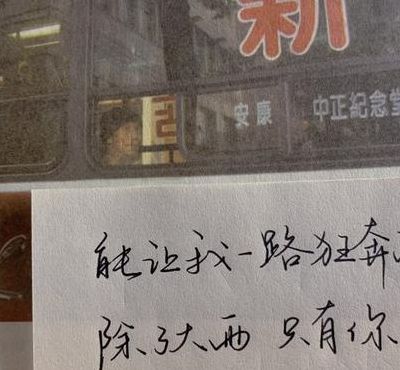 新
安康 中正紀念堂
能让我一路狂奔
除了大西 只有你